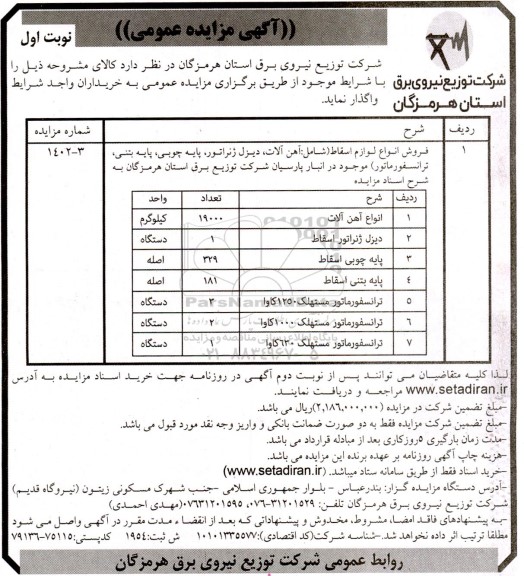 ((آگهی مزایده عمومی))
نوبت اول
شرکت توزیع نیروی برق
استان هرمزگان
شرکت توزیع نیروی برق استان هرمزگان در نظر دارد کالای مشروحه ذیل را
با شرایط موجود از طریق برگزاری مزایده عمومی به خریداران واجد شرایط
واگذار نماید.
ردیف شرح شماره مزایده
۱ فروش انواع لوازم اسقاط(شامل:آهن آلات، دیزل ژنراتور، پایه چوبی، پایه بتنی، ۱۴۰۲-۳
ترانسفورماتور) موجود در انبار پارسیان شرکت توزیع برق استان هرمزگان به
شرح اسناد مزایده
ردیف شرح تعداد واحد
۱ انواع آهن آلات ۱۹۰۰۰ کیلوگرم
۲ دیزل ژنراتور اسقاط ۱ دستگاه
۳ پایه چوبی اسقاط ۳۲۹ اصله
۴ پایه بتنی اسقاط ۱۸۱ اصله
۵ ترانسفورماتور مستهلک ۱۲۵۰کاوا دستگاه
۶ ترانسفورماتور مستهلک ۱۰۰۰کاوا ۲ دستگاه
۷ ترانسفورماتور مستهلک ۶۳۰کاوا ۱ دستگاه
ParsNamadData
۰۲۱-۸۸۳۴۹۶۷۰-۵
لذا کلیه متقاضیان می توانند پس از نوبت دوم آگهی در روزنامه جهت خرید اسناد مزایده به آدرس
www.setadiran.ir مراجعه و دریافت نمایند.
-مبلغ تضمین شرکت در مزایده (۲,۱۸۶,۰۰۰,۰۰۰)ریال می باشد.
-مبلغ تضمین شرکت مزایده فقط به دو صورت ضمانت بانکی و واریز وجه نقد مورد قبول می باشد.
-مدت زمان بارگیری ۵روزکاری بعد از مبادله قرارداد می باشد.
-هزینه چاپ آگهی روزنامه بر عهده برنده این مزایده می باشد.
-خرید اسناد فقط از طریق سامانه ستاد میباشد. (www.setadiran.ir)
-آدرس دستگاه مزایده گزار: بندرعباس - بلوار جمهوری اسلامی -جنب شهرک مسکونی زیتون (نیروگاه قدیم)
شرکت توزیع نیروی برق هرمزگان تلفن: ۳۱۲۰۱۵۲۹-۰۷۶، ۰۷۶۳۱۲۰۱۵۹۵(مهدی احمدی)
-به پیشنهادهای فاقد امضاء، مشروط، مخدوش و پیشنهاداتی که بعد از انقضاء مدت مقرر در آگهی واصل می شود
مطلقا ترتیب اثر داده نخواهد شد.-شناسه شرکت(کد اقتصادی): ۱۰۱۰۱۳۳۵۵۷۷ ش ثبت: ۱۹۵۴ کدپستی: ۷۵۱۱۵-۷۹۱۳۶
روابط عمومی شرکت توزیع نیروی برق هرمزگان